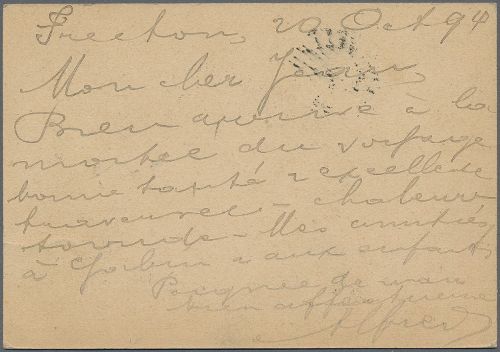 Freeton, 20 Oct 94
Mon cher Jean,
Bien arrivé à la
moitié du voyage
bonne santé & excellente
traversée - chaleur
torride - Mes amitiés
à & aux enfants
Poignée de main
bien affectueuse
Alfred